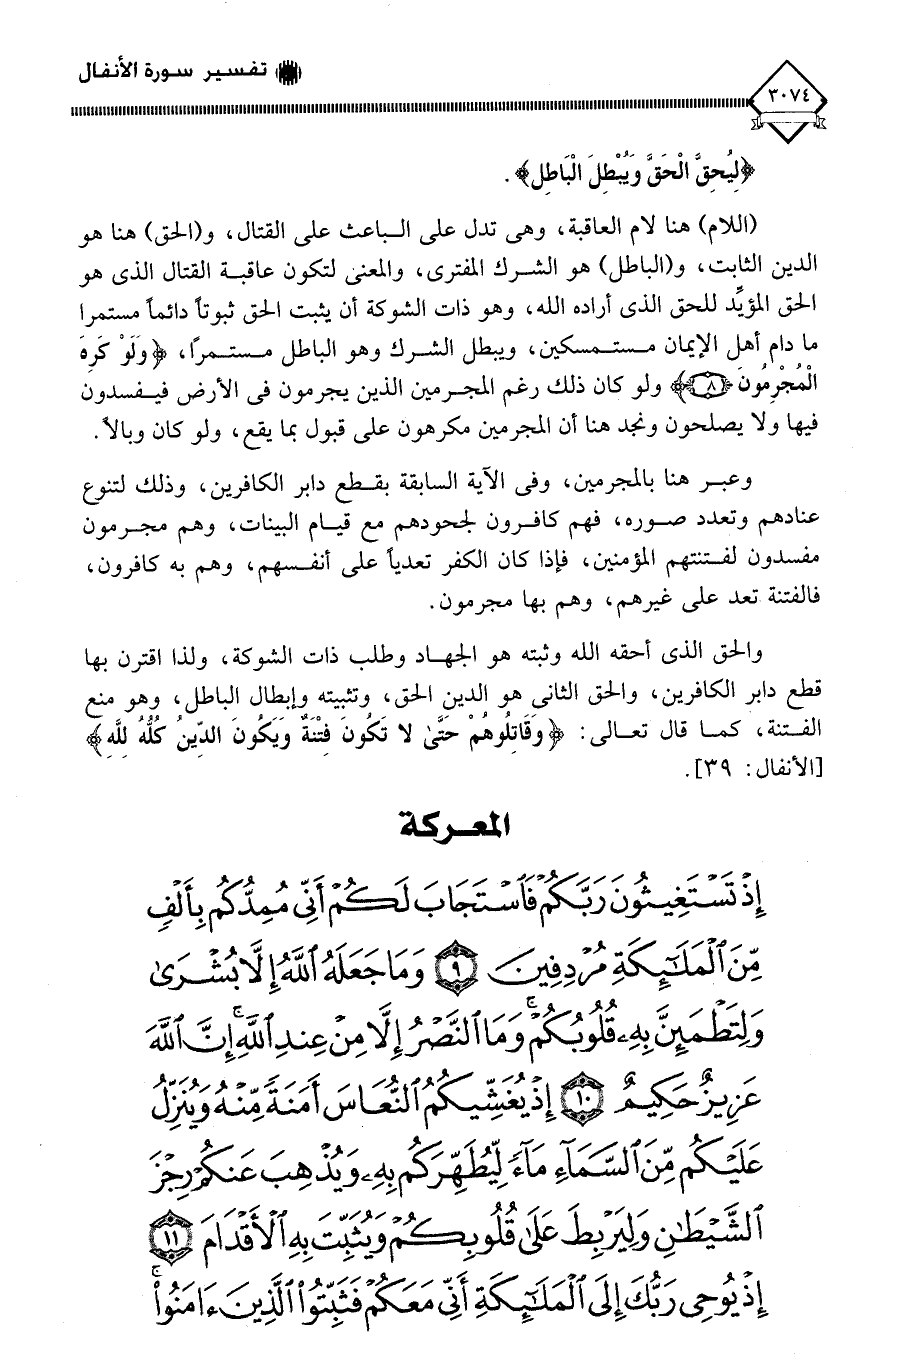 تفسير سورة الأنفال
٣٠٧٤
﴿لِيُحِقَّ الْحَقَّ وَيُبْطِلَ الْبَاطِلَ﴾ .
(اللام) هنا لام العاقبة، وهى تدل على الباعث على القتال، و(الحق) هنا هو
الدين الثابت، و(الباطل) هو الشرك المفترى، والمعنى لتكون عاقبة القتال الذى هو
الحق المؤيَّد للحق الذى أراده الله، وهو ذات الشوكة أن يثبت الحق ثبوتاً دائماً مستمرا
ما دام أهل الإيمان مستمسكين، ويبطل الشرك وهو الباطل مستمرًا، ﴿وَلَوْ كَرِهَ
الْمُجْرِمُونَ ﴿٨﴾﴾ ولو كان ذلك رغم المجرمين الذين يجرمون فى الأرض فيفسدون
فيها ولا يصلحون ونجد هنا أن المجرمين مكرهون على قبول بما يقع، ولو كان وبالاً.
وعبر هنا بالمجرمين، وفى الآية السابقة بقطع دابر الكافرين، وذلك لتنوع
عنادهم وتعدد صوره، فهم كافرون لجحودهم مع قيام البينات، وهم مجرمون
مفسدون لفتنتهم المؤمنين، فإذا كان الكفر تعدياً على أنفسهم، وهم به كافرون،
فالفتنة تعد على غيرهم، وهم بها مجرمون.
والحق الذى أحقه الله وثبته هو الجهاد وطلب ذات الشوكة، ولذا اقترن بها
قطع دابر الكافرين، والحق الثانى هو الدين الحق، وتثبيته وإبطال الباطل، وهو منع
الفتنة، كما قال تعالى: ﴿وَقَاتِلُوهُمْ حَتَّىٰ لا تَكُونَ فِتْنَةٌ وَيَكُونَ الدِّينُ كُلُّهُ لِلَّهِ﴾
[الأنفال: ٣٩].
المعركة
إِذْ تَسْتَغِيثُونَ رَبَّكُمْ فَٱسْتَجَابَ لَكُمْ أَنِّي مُمِدُّكُم بِأَلْفٍ
مِّنَ ٱلْمَلَٰٓئِكَةِ مُرْدِفِينَ ٩ وَمَا جَعَلَهُ ٱللَّهُ إِلَّا بُشْرَىٰ
وَلِتَطْمَئِنَّ بِهِۦ قُلُوبُكُمْ ۚ وَمَا ٱلنَّصْرُ إِلَّا مِنْ عِندِ ٱللَّهِ ۚ إِنَّ ٱللَّهَ
عَزِيزٌ حَكِيمٌ ١٠ إِذْ يُغَشِّيكُمُ ٱلنُّعَاسَ أَمَنَةً مِّنْهُ وَيُنَزِّلُ
عَلَيْكُم مِّنَ ٱلسَّمَآءِ مَآءً لِّيُطَهِّرَكُم بِهِۦ وَيُذْهِبَ عَنكُمْ رِجْزَ
ٱلشَّيْطَٰنِ وَلِيَرْبِطَ عَلَىٰ قُلُوبِكُمْ وَيُثَبِّتَ بِهِ ٱلْأَقْدَامَ ١١
إِذْ يُوحِي رَبُّكَ إِلَى ٱلْمَلَٰٓئِكَةِ أَنِّي مَعَكُمْ فَثَبِّتُوا۟ ٱلَّذِينَ ءَامَنُوا۟ ۚ